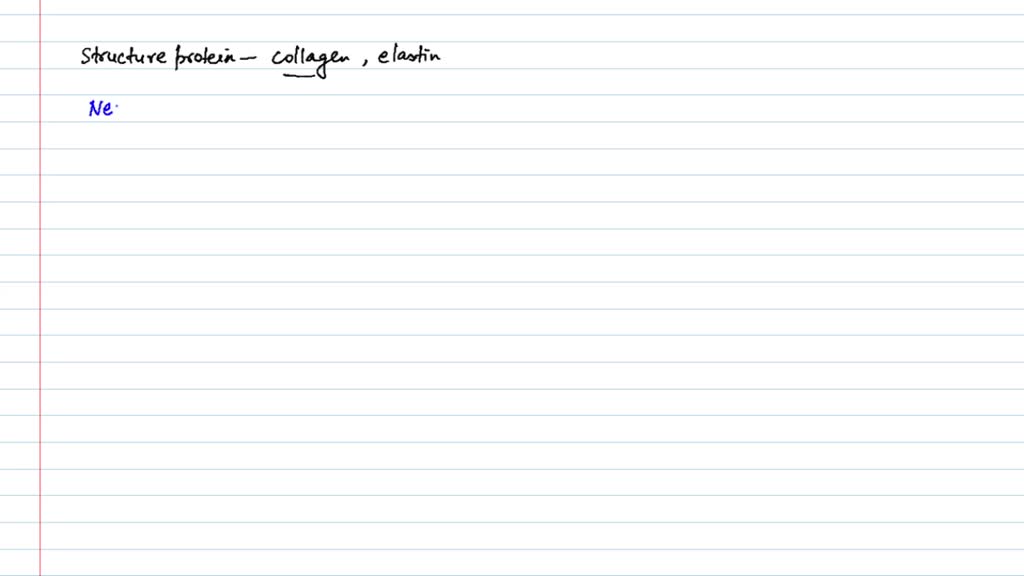 Structure protein - collagen, elastin
Ne